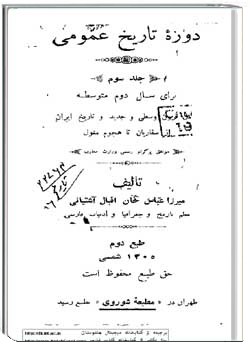 دورهٔ تاریخ عمومی
جلد سوم
برای سال دوم متوسطه
وسطی و جدید و تاریخ ایران
صفاریان تا هجوم مغول
موافق پروگرام رسمی وزارت معارف
تألیف
میرزا عباس خان اقبال آشتیانی
معلم تاریخ و جغرافیا و ادبیات فارسی
طبع دوم
۱۳۰۵ شمسی
حق طبع محفوظ است
طهران در مطبعهٔ شوروی بطبع رسید